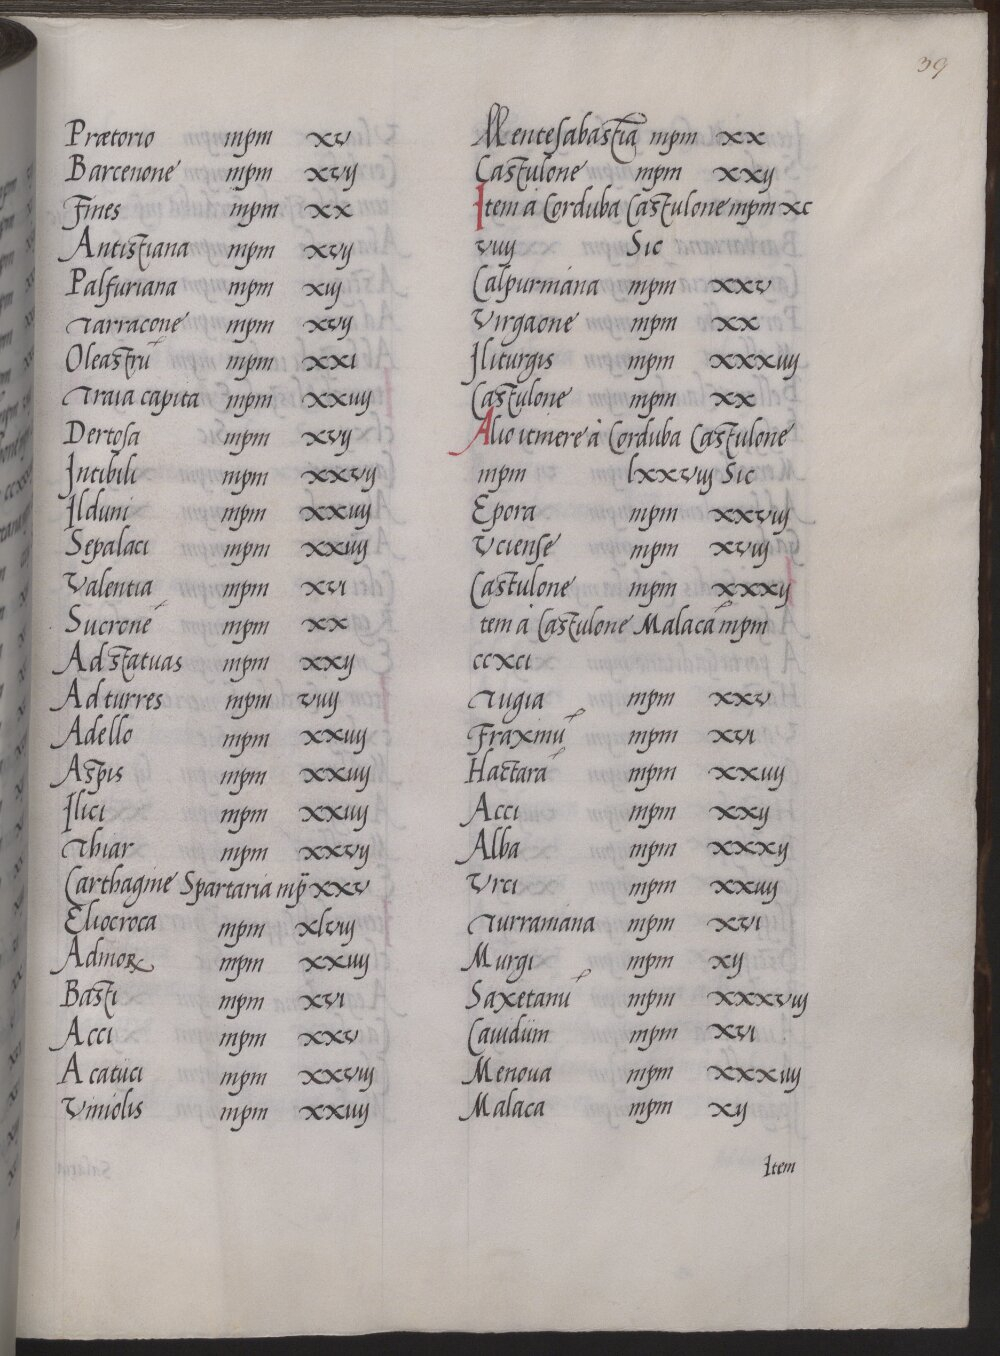 39
Prætorio mpm xv
Barcenone mpm xvij
Fines mpm xx
Antistiana mpm xvij
Palfuriana mpm xiij
Tarracone mpm xvij
Oleastrũ mpm xxi
Traia capita mpm xxiiij
Dertosa mpm xvij
Intibili mpm xxvij
Ilduni mpm xxiiij
Sepalaci mpm xxiiij
Valentia mpm xvi
Sucrone mpm xx
Ad statuas mpm xxij
Ad turres mpm viiij
Adello mpm xxiiij
Aspis mpm xxiiij
Ilici mpm xxiiij
Thiar mpm xxvij
Carthagine Spartaria mp̃ xxv
Eliocroca mpm xlviij
Admoꝝ mpm xxiiij
Basti mpm xvi
Acci mpm xxv
Acatuci mpm xxviij
Viniolis mpm xxiiij
Mentesabastia mpm xx
Castulone mpm xxij
Item a Corduba Castulone mpm xc
viiij Sic
Calpurniana mpm xxv
Virgaone mpm xx
Iliturgis mpm xxxiiij
Castulone mpm xx
Alio itinere à Corduba Castulone
mpm lxxviij Sic
Epora mpm xxviij
Vciense mpm xviij
Castulone mpm xxxij
tem a Castulone Malacã mpm
ccxci
Tugia mpm xxv
Fraxinũ mpm xvi
Hactarã mpm xxiiij
Acci mpm xxij
Alba mpm xxxij
Vrci mpm xxiiij
Turraniana mpm xvi
Murgi mpm xij
Saxetanũ mpm xxxviij
Cauidum mpm xvi
Menoua mpm xxxiiij
Malaca mpm xij
Item